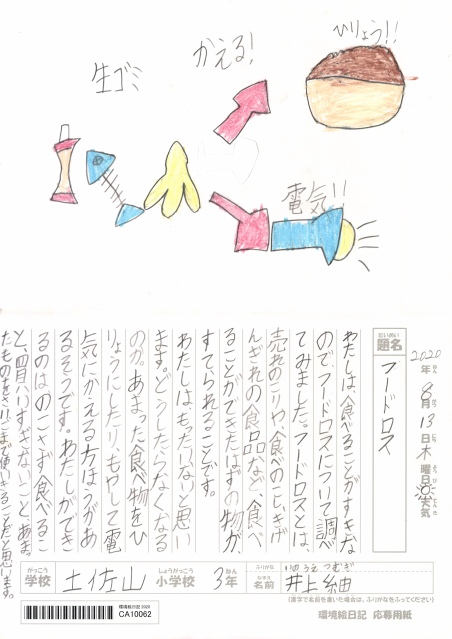 生ゴミ
かえる!
ひりょう!!
電気!!
だいめい
題名
フードロス
2020年8月13日木曜日
天気
わたしは、食べることがすきな
のでフードロスについて調べ
てみました。フードロスとは、
売れのこりや、食べのこし、きげ
んぎれの食品など、食べ
ることができたはずの物が、
すてられることです。
わたしは、もったいないと思い
ます。どうしたらなくなる
のか。あまった食べ物をひ
りょうにしたり、もやして電
気にかえる方ほうがあ
るそうです。わたしができ
るのはのこさず食べるこ
と、買いすぎないこと、あま
たものをさいごまで使いきることだと思います。
がっこう
学校
土佐山
しょうがっこう
小学校
3年
ふりがな
いのうえ つむぎ
なまえ
名前
井上紬
(漢字で名前を書いた場合は、ふりがなをふってください)
環境絵日記 2020
CA10062
環境絵日記 応募用紙